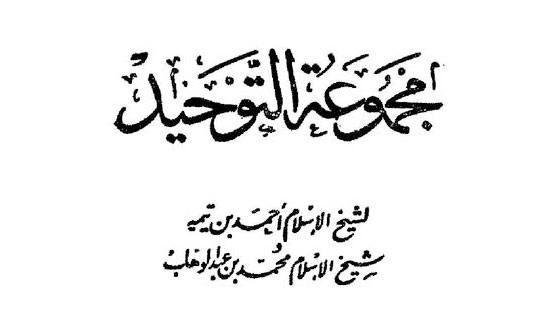 مجموعة التوحيد
لشيخ الإسلام أحمد بن تيميه
شيخ الإسلام محمد بن عبد الوهاب